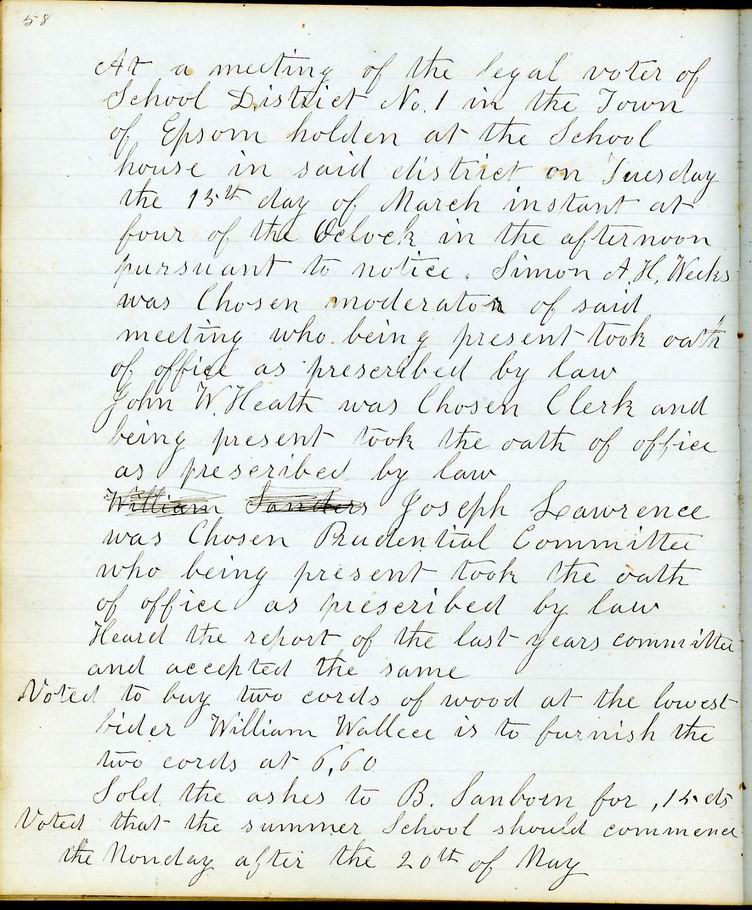 58
At a meeting of the legal voter of
School District No. 1 in the Town
of Epsom holden at the School
house in said district on Tuesday
the 15th day of March instant at
four of the Oclock in the afternoon
pursuant to notice. Simon A. H. Weeks
was Chosen moderator of said
meeting who being present took oath
of office as prescribed by law
John W. Heath was Chosen Clerk and
being present took the oath of office
as prescribed by law
William Sanders Joseph Lawrence
was Chosen Prudential Committee
who being present took the oath
of office as prescribed by law
Heard the report of the last years committee
and accepted the same
Voted to buy two cords of wood at the lowest
bider William Wallece is to furnish the
two cords at 6,60
Sold the ashes to B. Sanborn for ,15 cts
Voted that the summer School should commence
the Monday after the 20th of May